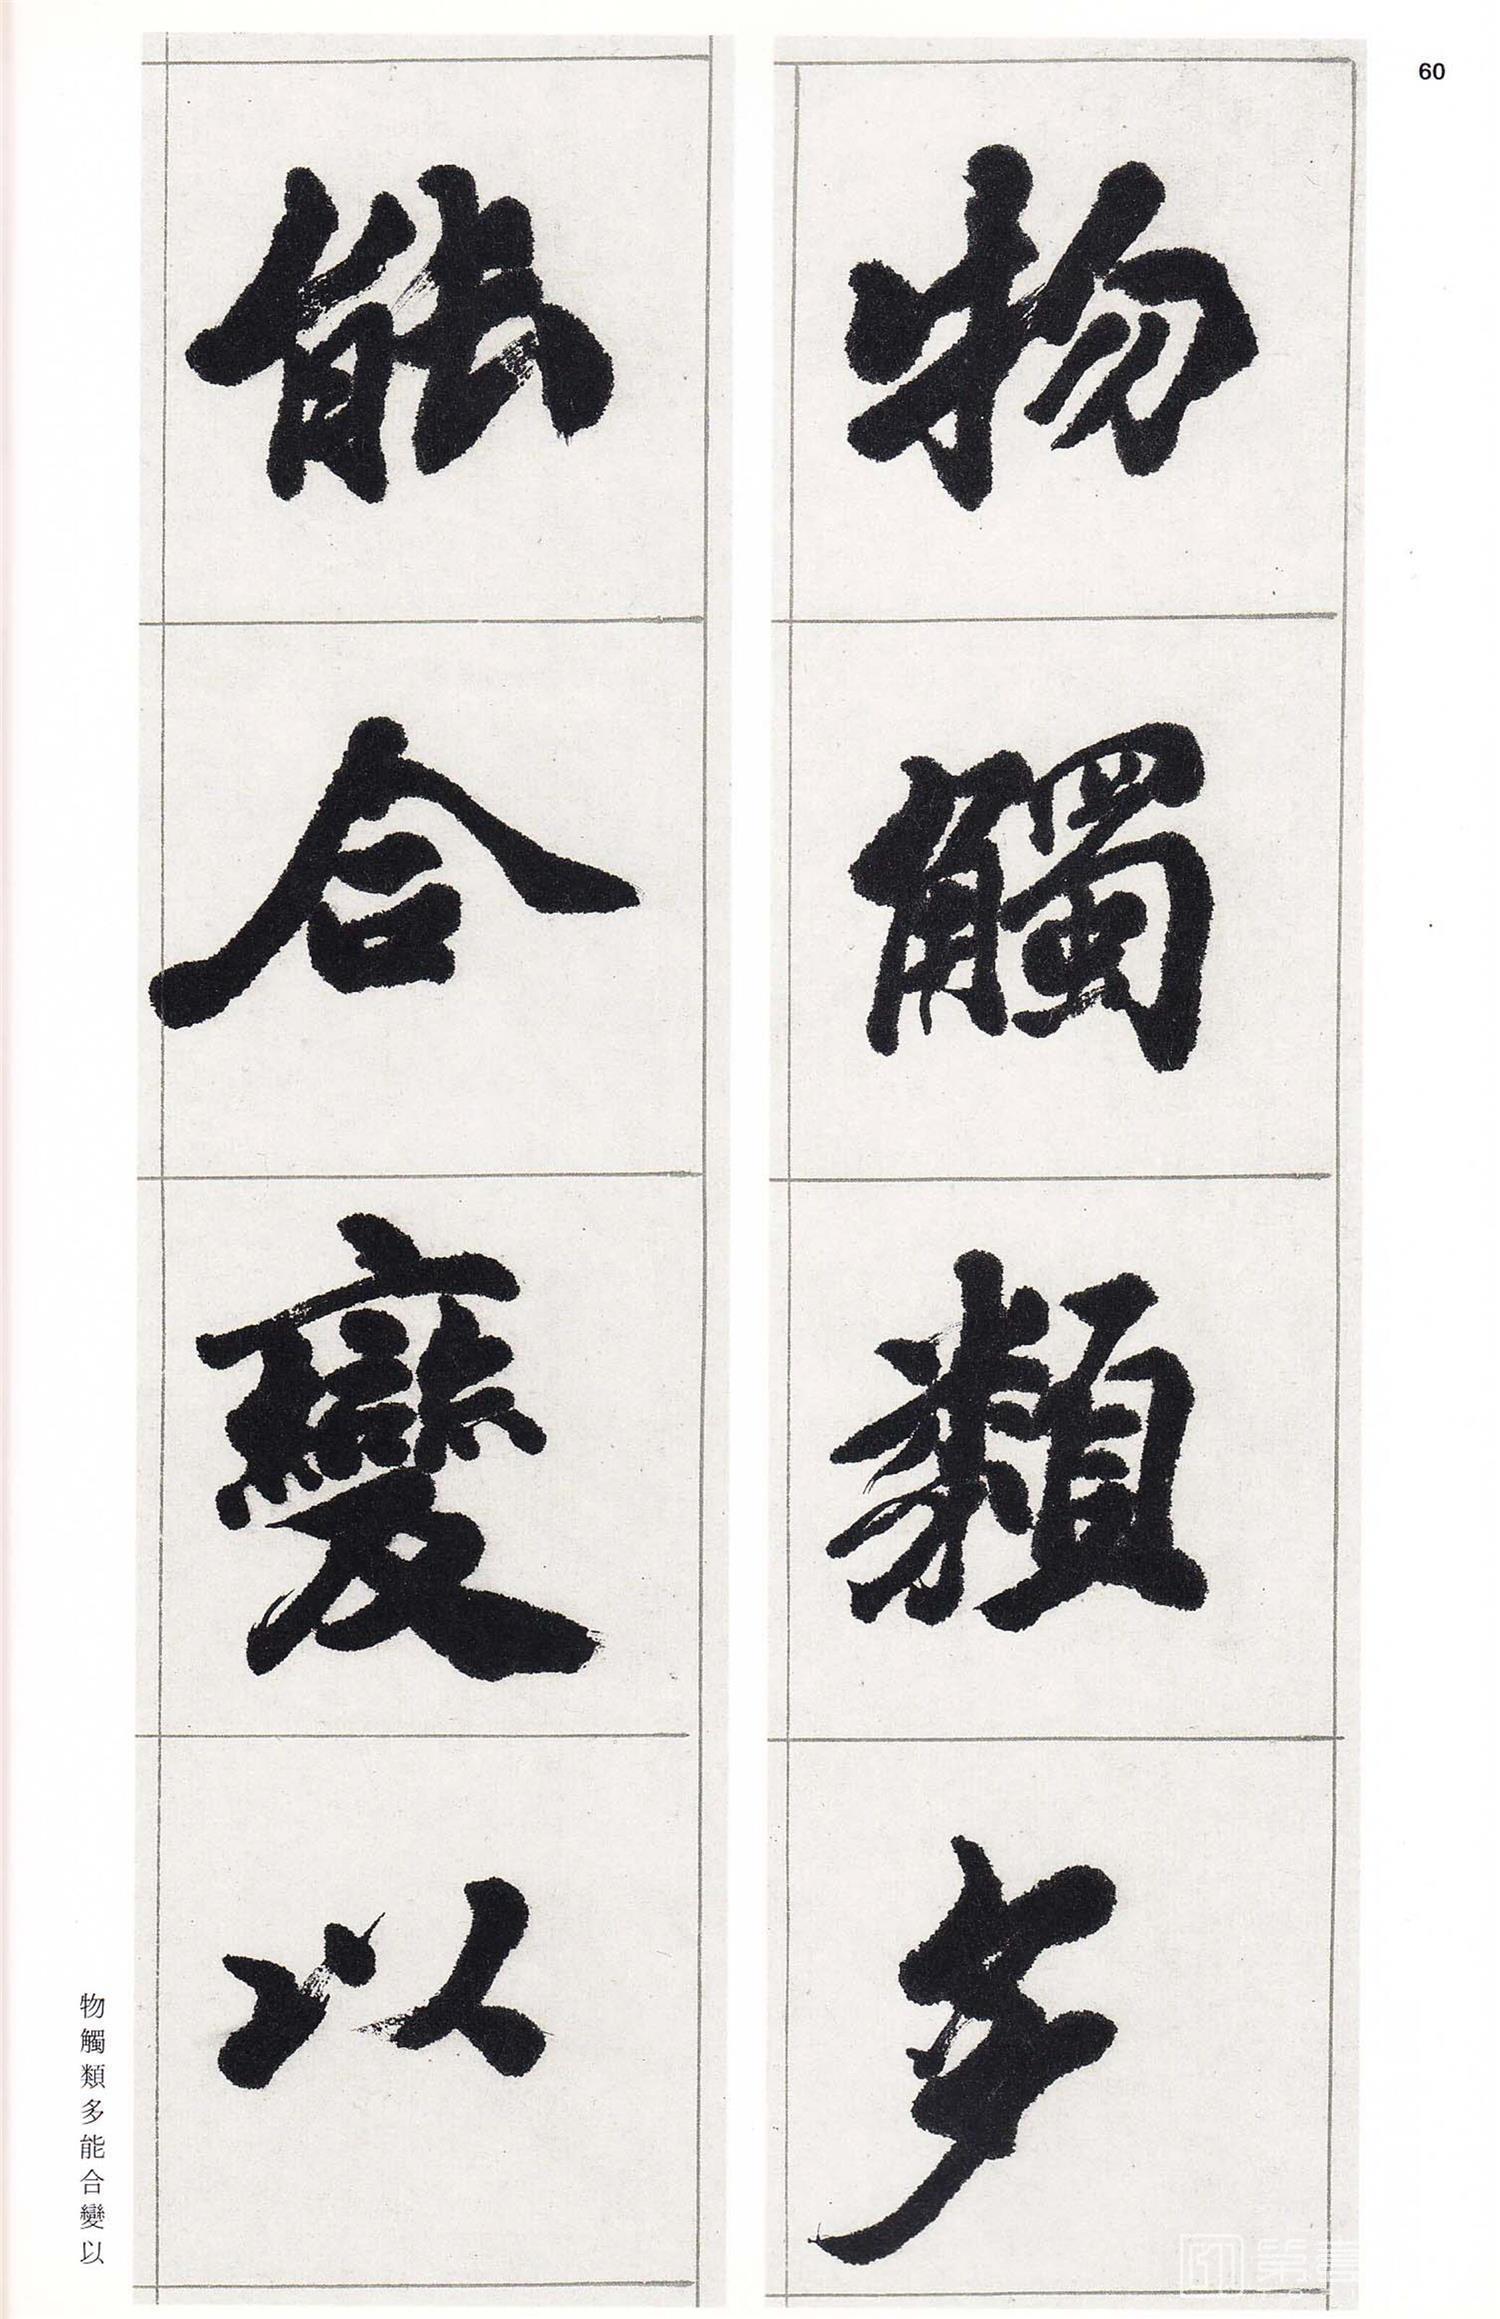 60
物觸類多
能合變以
物觸類多能合變以